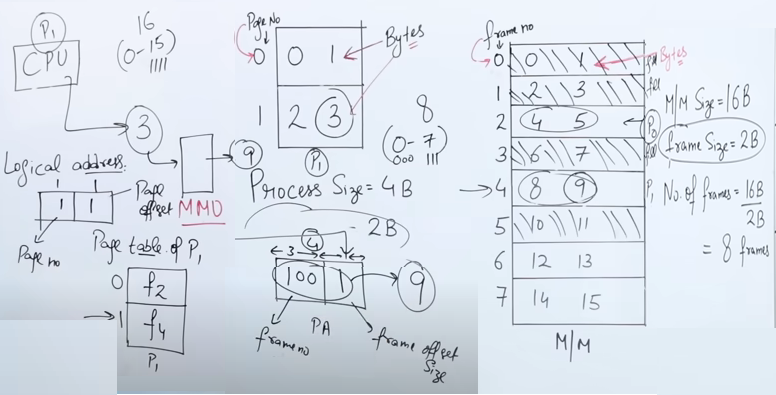 P1
CPU
16
(0-15)
1111
3
9
Logical address.
1 1
1 1
Page offset
MMU
Page no
Page table of P1
0 f2
1 f4
P1
Page No
0 0 1
1 2 3
P1
Bytes
8
(0-7)
000 111
Process Size = 4B
2B
4
3 1
100 1
9
frame no
PA
frame offset
Size
frame no
0 0 1
1 2 3
2 4 5
3 6 7
4 8 9
5 10 11
6 12 13
7 14 15
M/M
Bytes
full
full
P0
full
P1
M/M Size = 16B
frame Size = 2B
No. of frames = 16B
2B
= 8 frames